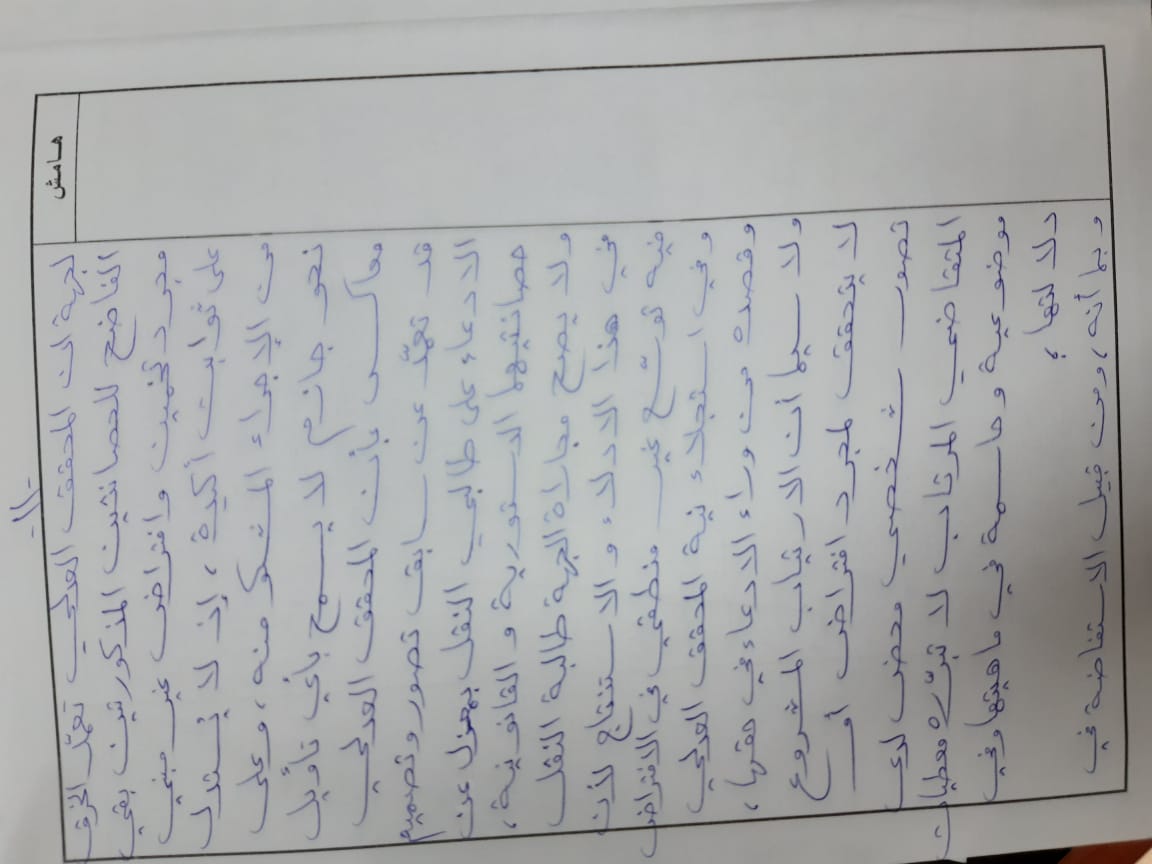 -١١-
هامش
لجهة أن المحقق العدلي تعمّد الخرق
الفاضح للحصانتين المذكورتين بقي
مجرد تخمين وافتراض غير مبني
على ثوابت أكيدة، إذ لا يُستدل
من الإجراء المشكو منه، وعلى
نحو جازم لا يسمح بأي تأويل
معاكس بأن المحقق العدلي
قد تعمّد عن سابق تصور وتصميم
الادعاء على طالبي النقل بمعزل عن
حصانتيهما الدستورية والقانونية،
ولا يصح مجاراة الجهة طالبة النقل
في هذا الادلاء والاستنتاج لأن
فيه توسّع غير منطقي في الافتراض
وفي استجلاء نية المحقق العدلي
وقصده من وراء الادعاء في حقها،
ولا سيما أن الارتياب المشروع
لا يتحقق لمجرد افتراض أو
تصور شخصي محض لدى
المتقاضي المرتاب لا تبرّره معطيات
موضوعية وحاسمة في ماهيتها وفي
دلالتها؛
وبما أنه، ومن قبيل الاستفاضة في